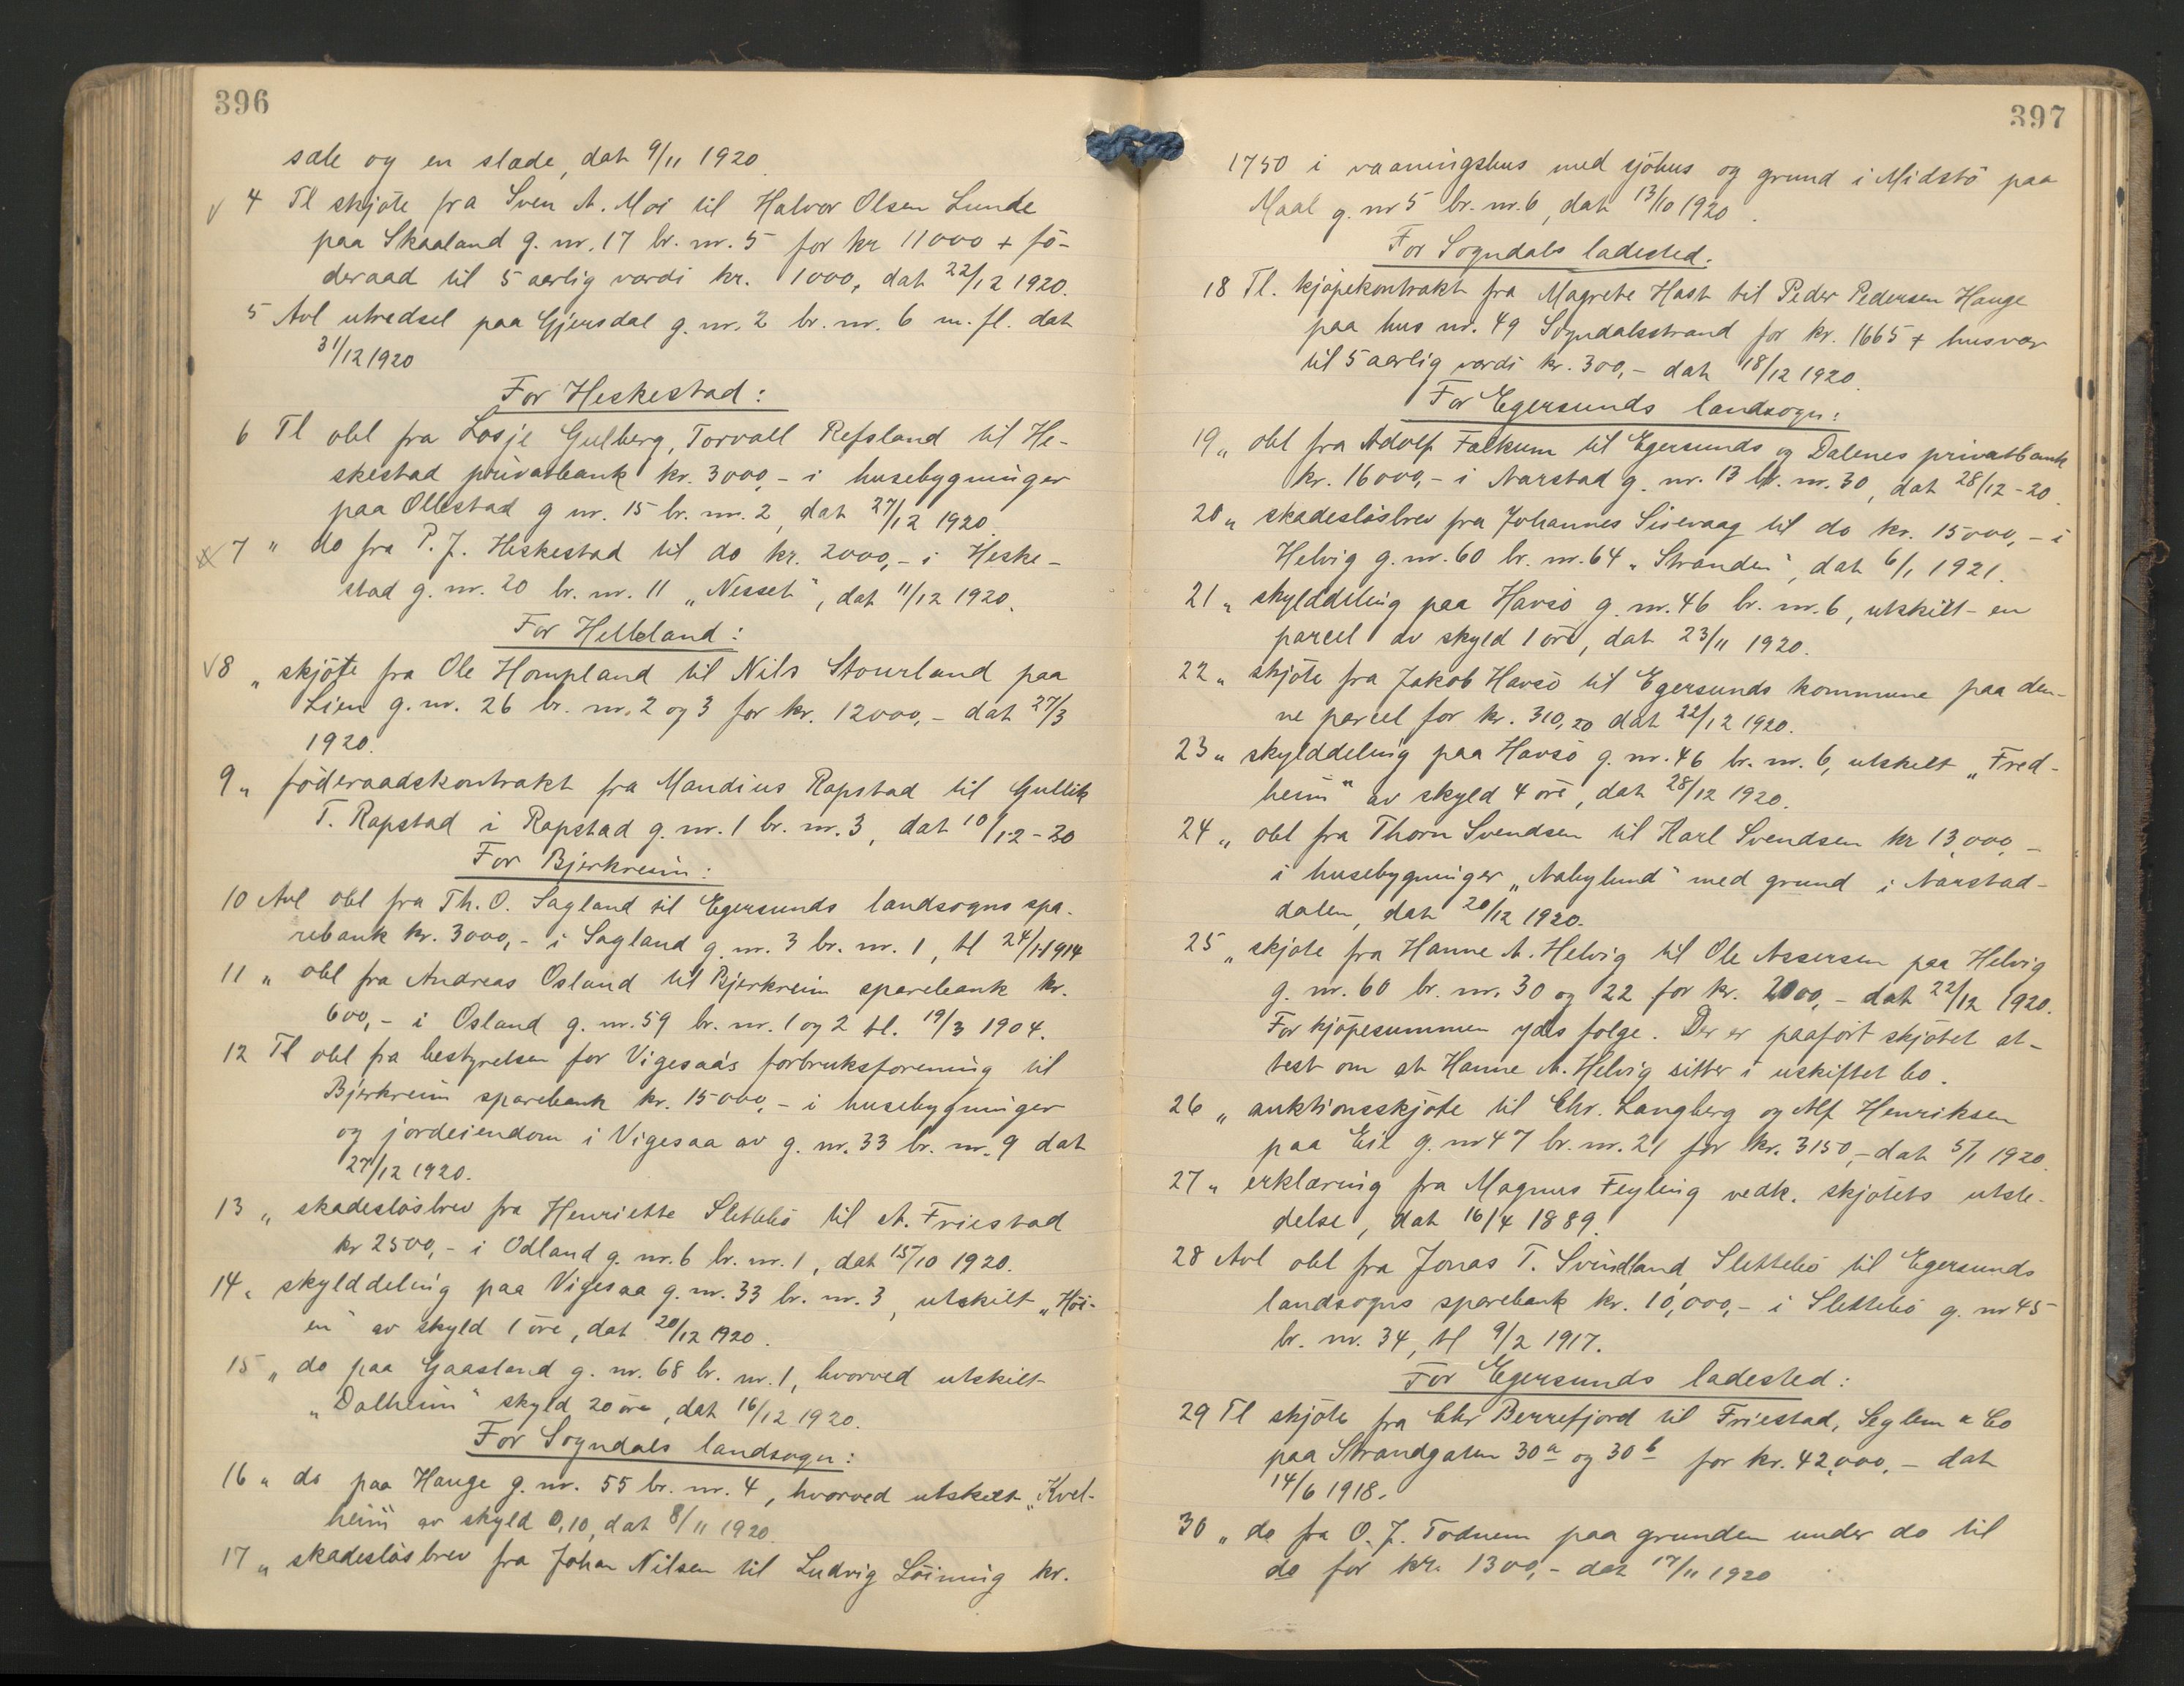 396
sæle og en slæde, dat 9/11 1920.
4 Tl skjöte fra Sven A. Moi til Halvor Olsen Lunde
paa Skaaland g. nr. 17 br. nr. 5 for kr 11000 + fö-
deraad til 5 aarlig værdi kr. 1000, dat 22/12 1920.
5 Avl utredsel paa Gjersdal g. nr. 2 br. nr. 6 m. fl. dat
31/12 1920
For Heskestad:
6 Tl obl fra Losje Gulberg, Torvall Refsland til He-
skestad privatbank kr. 3000,- i husebygninger
paa Ollestad g nr. 15 br. nr. 2, dat 27/12 1920.
7 " do fra P. J. Heskestad til do kr. 2000,- i Heske-
stad g. nr. 20 br. nr. 11 „Nesset", dat 11/12 1920.
For Helleland:
8 " skjöte fra Ole Hompland til Nils Stourland paa
Lien g. nr. 26 br. nr. 2 og 3 for kr. 12000,- dat 27/3
1920.
9 " föderaadskontrakt fra Mandius Rapstad til Gullik
T. Rapstad i Rapstad g. nr. 1 br. nr. 3, dat 10/12-20
For Bjerkreim:
10 Avl obl fra Th. O. Sagland til Egersunds landsogns spa-
rebank kr. 3000,- i Sagland g. nr. 3 br. nr. 1, tl 24/1 1914
11 " obl fra Andreas Osland til Bjerkreim sparebank kr.
600,- i Osland g. nr. 59 br. nr. 1 og 2 tl. 19/3 1904.
12 Tl obl fra bestyrelsen for Vigesaas forbruksforening til
Bjerkreim sparebank kr. 15000,- i husebygninger
og jordeiendom i Vigesaa av g. nr. 33 br. nr. 9 dat
27/12 1920.
13 " skadeslösbrev fra Henriette Slettebö til A. Friestad
kr 2500,- i Odland g. nr. 6 br. nr. 1, dat 15/10 1920.
14 " skylddeling paa Vigesaa g. nr. 33 br. nr. 3, utskilt „Höi-
en" av skyld 1 öre, dat 20/12 1920.
15 " do paa Gaasland g. nr. 68 br. nr. 1, hvorved utskilt
„Dalheim" skyld 20 öre, dat 16/12 1920.
For Sogndals landsogn:
16 " do paa Hauge g. nr. 55 br. nr. 4, hvorved utskilt „Kvel-
heim av skyld 0,10, dat 8/11 1920.
17 " skadeslösbrev fra Johan Nilsen til Ludvig Löining kr.
397
1750 i vaaningshus med sjöhus og grund i Midstö paa
Maal g. nr 5 br. nr. 6, dat 13/10 1920.
For Sogndals ladested.
18 Tl. kjöpekontrakt fra Magrete Hast til Peder Pedersen Hauge
paa hus nr. 49 Sogndalsstrand for kr. 1665 + husvær
til 5 aarlig værdi kr. 300,- dat 18/12 1920.
For Egersunds landsogn:
19 " obl fra Adolf Falkum til Egersunds og Dalenes privatbank
kr. 16000,- i Aarstad g. nr. 13 br. nr. 30, dat 28/12-20.
20 " skadeslösbrev fra Johannes Sisevaag til do kr. 15000,- i
Helvig g. nr. 60 br. nr. 64 „Stranden", dat 6/1 1921.
21 " skylddeling paa Havsö g. nr. 46 br. nr. 6, utskilt en
parcel av skyld 1 öre, dat 23/11 1920.
22 " skjöte fra Jakob Havsö til Egersunds kommune paa den-
ne parcel for kr. 310,20 dat 22/12 1920.
23 " skylddeling paa Havsö g. nr. 46 br. nr. 6, utskilt „Fred-
heim" av skyld 4 öre, dat 28/12 1920.
24 " obl fra Thorn Svendsen til Karl Svendsen kr 13,000,-
i husebygninger „Nabylund" med grund i Aarstad-
dalen, dat 20/12 1920.
25 " skjöte fra Hanne A. Helvig til Ole Assersen paa Helvig
g. nr. 60 br. nr. 30 og 22 for kr. 2000,- dat 22/12 1920.
For kjöpesummen ydes følge. Der er paaført skjötet at-
test om at Hanne A. Helvig sitter i uskiftet bo.
26 " auktionsskjöte til Chr. Langberg og Alf Henriksen
paa Eie g. nr 47 br. nr. 21 for kr. 3150,- dat 5/1 1920.
27 " erklæring fra Magnus Feyling vedk. skjötets utste-
delse, dat 16/4 1889.
28 Avl obl fra Jonas T. Svindland, Slettebö til Egersunds
landsogns sparebank kr. 10,000,- i Slettebö g. nr 45
br. nr. 34, tl 9/2 1917.
For Egersunds ladested:
29 Tl skjöte fra Chr Berrefjord til Friestad, Seglem & Co
paa Strandgaten 30a og 30b for kr. 42,000,- dat
14/6 1918.
30 " do fra O. J. Todnem paa grunden under do til
do for kr. 1300,- dat 17/11 1920